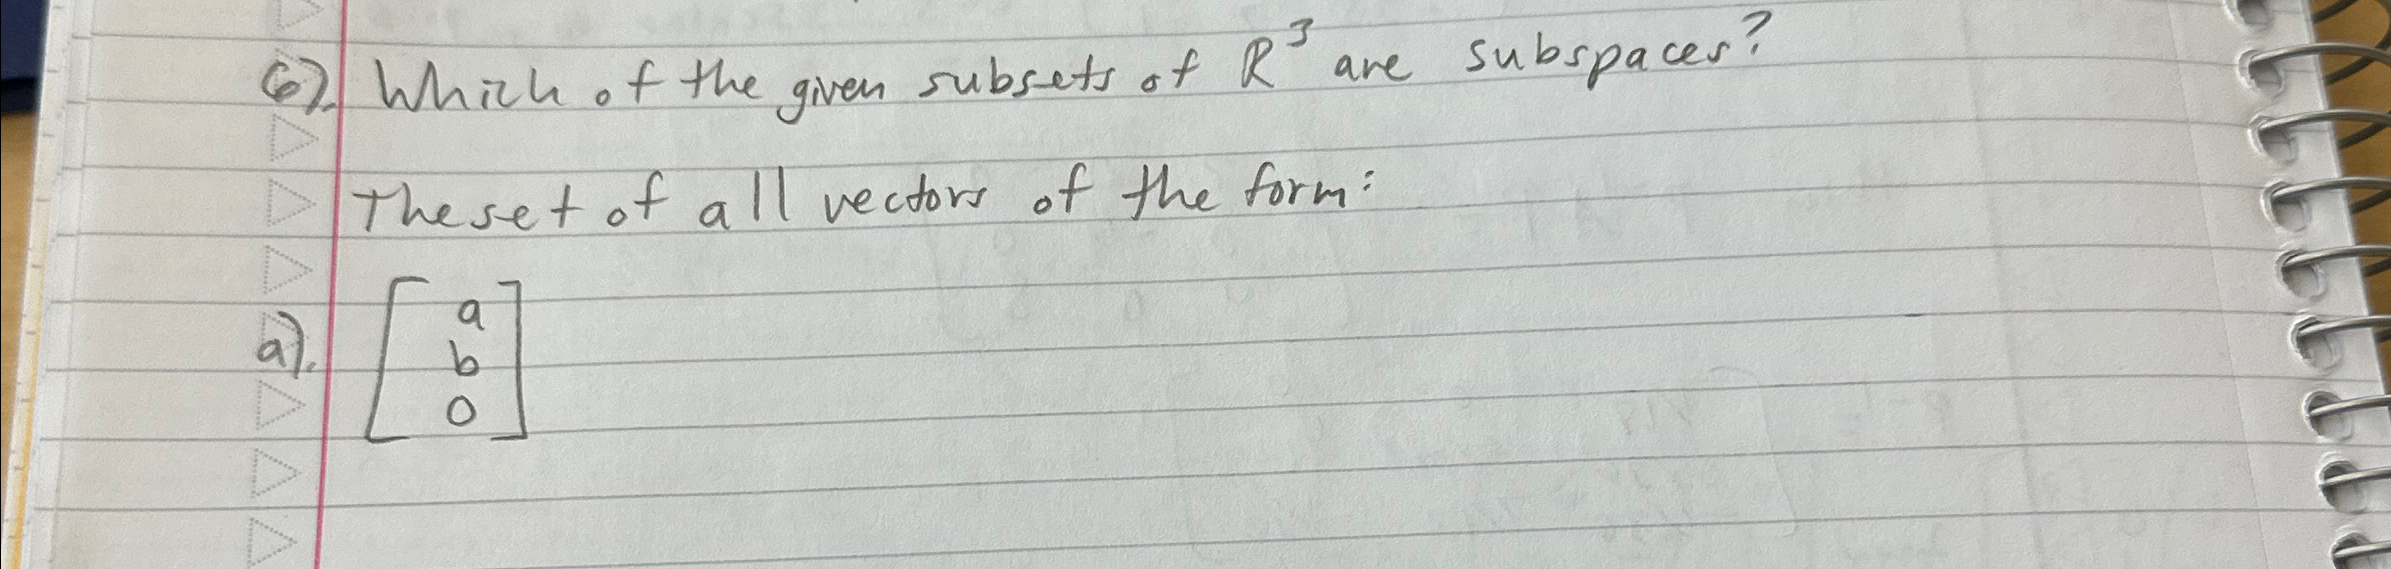 6). Which of the given subsets of R³ are subspaces?
The set of all vectors of the form:
a). [a
b
0]